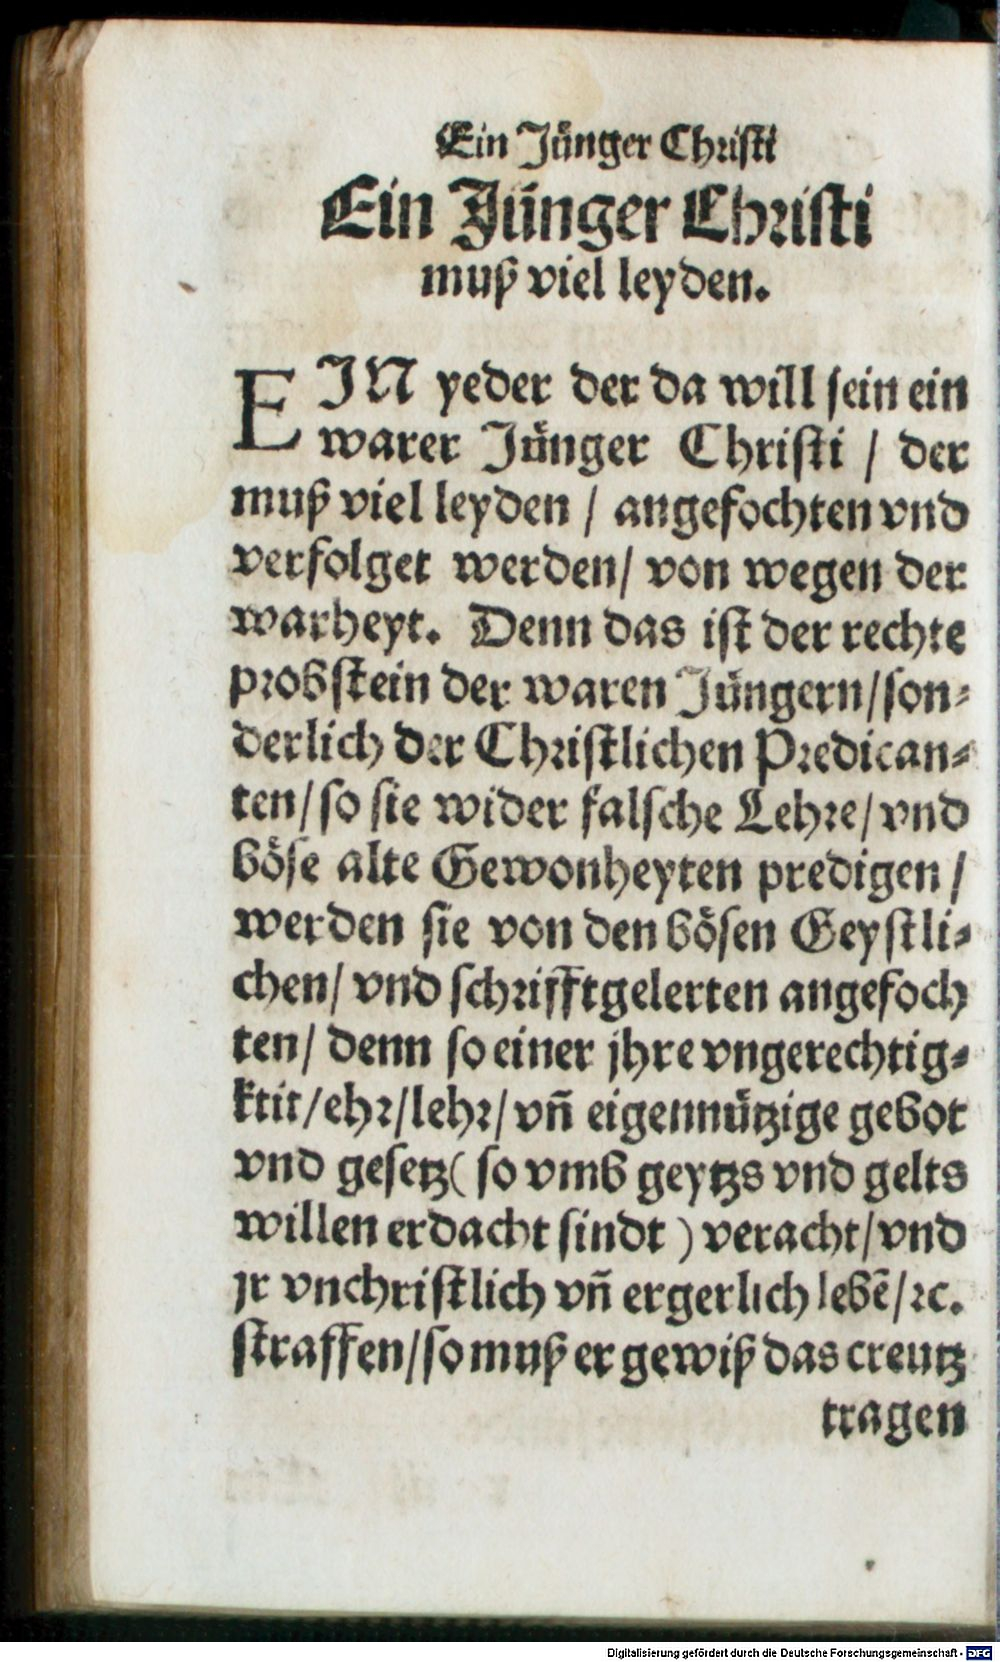 Ein Jünger Christi
Ein Jünger Christi
muß viel leyden.
EJN yeder der da will sein ein
warer Jünger Christi / der
muß viel leyden / angefochten vnd
verfolget werden / von wegen der
warheyt. Denn das ist der rechte
probstein der waren Jüngern / son⸗
derlich der Christlichen Predican⸗
ten / so sie wider falsche Lehre / vnd
böse alte Gewonheyten predigen /
werden sie von den bösen Geystli⸗
chen / vnd schrifftgelerten angefoch
ten / denn so einer jhre vngerechtig⸗
ktit / ehr / lehr / vñ eigennützige gebot
vnd gesetz ( so vmb geytzs vnd gelts
willen erdacht sindt ) veracht / vnd
jr vnchristlich vñ ergerlich lebẽ / ꝛc.
straffen / so muß er gewiß das creutz
tragen
Digitalisierung gefördert durch die Deutsche Forschungsgemeinschaft - DFG